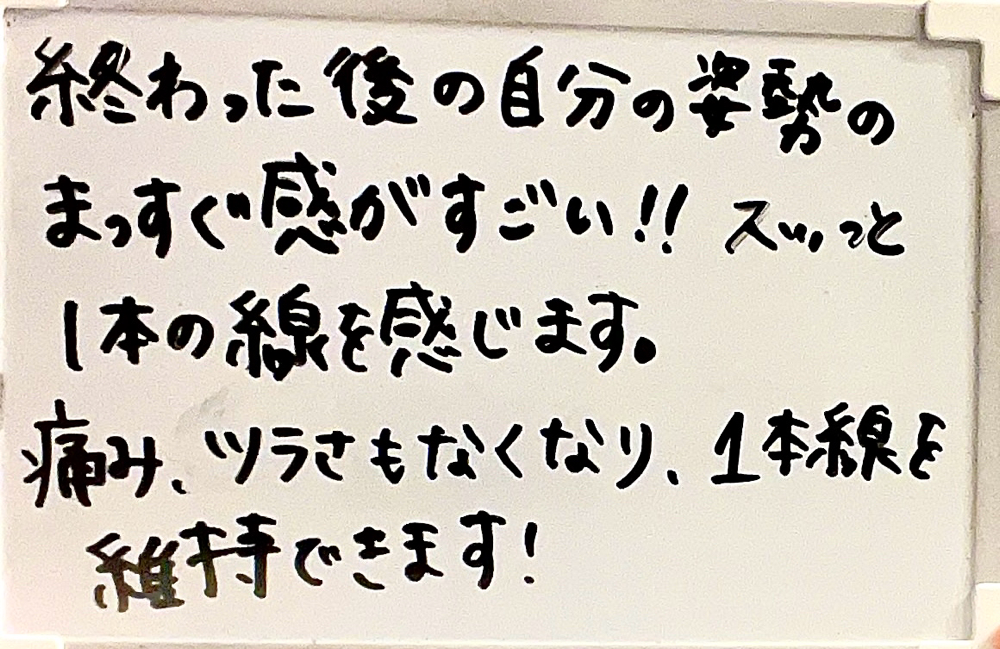 終わった後の自分の姿勢の
まっすぐ感がすごい!! スッっと
1本の線を感じます。
痛み、ツラさもなくなり、1本線を
維持できます!